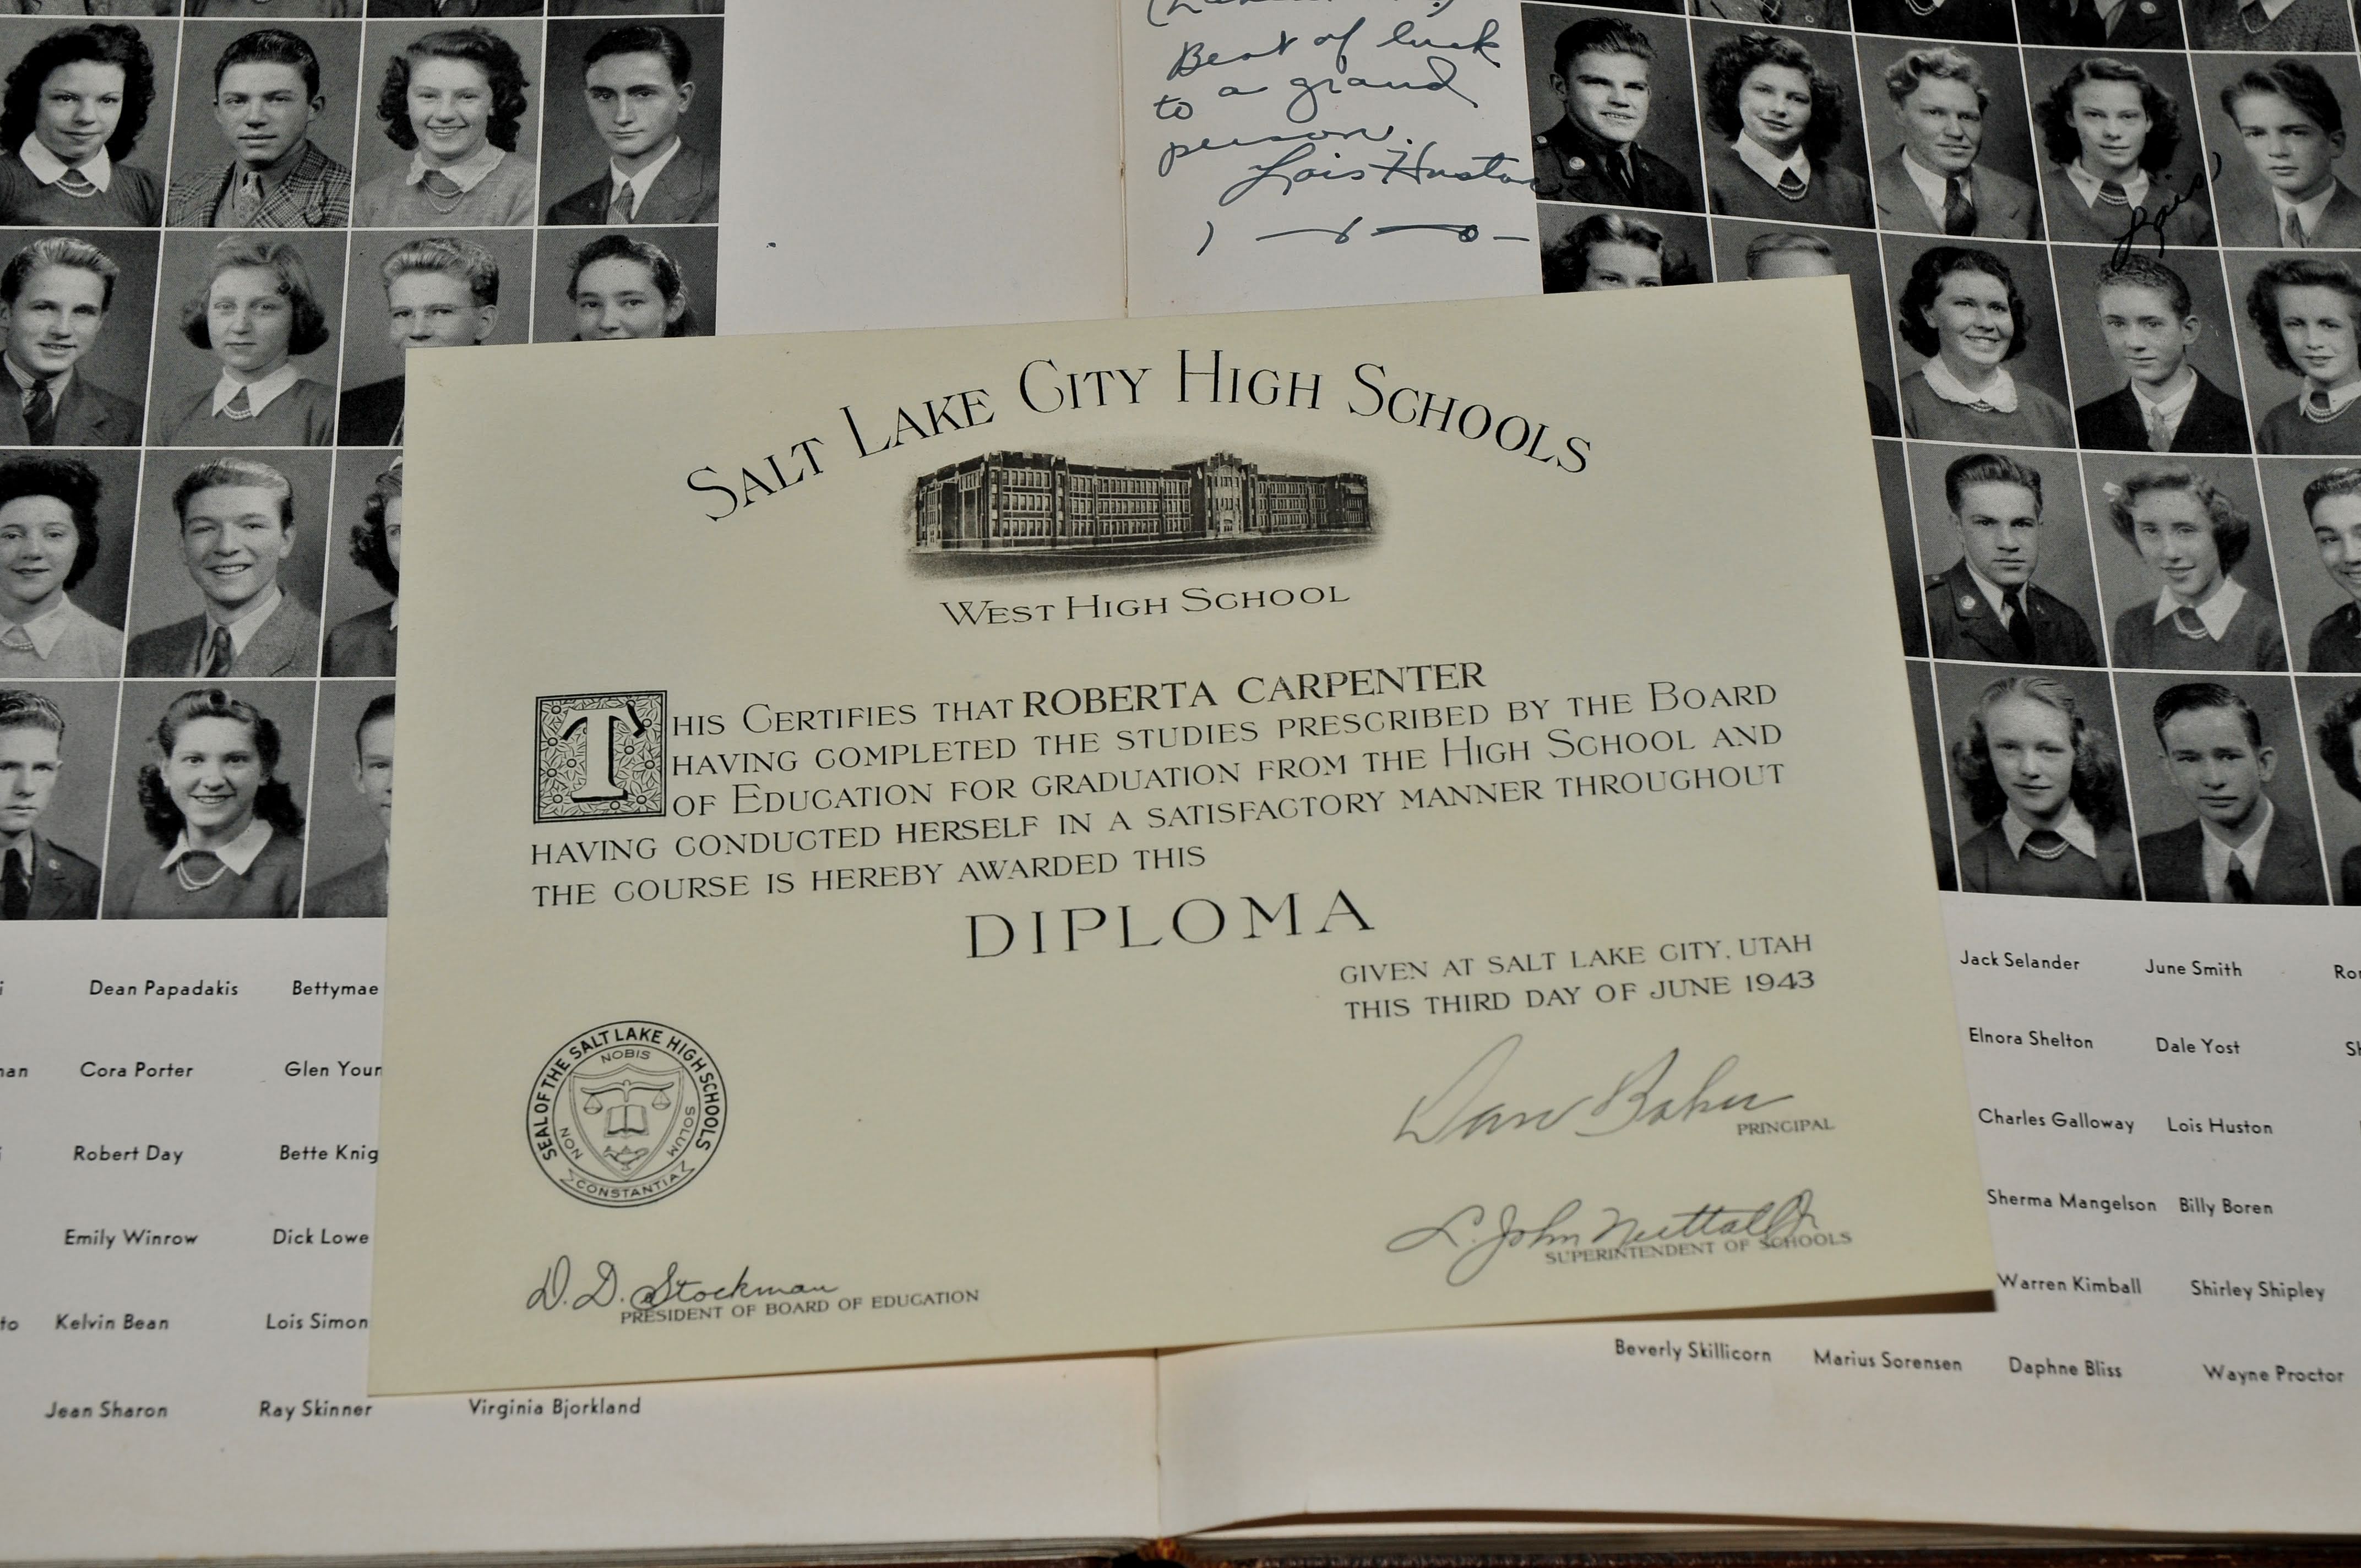 Best of luck
to a grand
person.
Lois Huston
Lois
SALT LAKE CITY HIGH SCHOOLS
WEST HIGH SCHOOL
THIS CERTIFIES THAT ROBERTA CARPENTER
HAVING COMPLETED THE STUDIES PRESCRIBED BY THE BOARD
OF EDUCATION FOR GRADUATION FROM THE HIGH SCHOOL AND
HAVING CONDUCTED HERSELF IN A SATISFACTORY MANNER THROUGHOUT
THE COURSE IS HEREBY AWARDED THIS
DIPLOMA
GIVEN AT SALT LAKE CITY, UTAH
THIS THIRD DAY OF JUNE 1943
SEAL OF THE SALT LAKE HIGH SCHOOLS
NON NOBIS SOLUM
CONSTANTIA
Dan Baker
PRINCIPAL
L. John Nuttall Jr
SUPERINTENDENT OF SCHOOLS
D. D. Stockman
PRESIDENT OF BOARD OF EDUCATION
Dean Papadakis Bettymae
Cora Porter Glen Your
Robert Day Bette Knig
Emily Winrow Dick Lowe
Kelvin Bean Lois Simon
Jean Sharon Ray Skinner Virginia Bjorkland
Jack Selander June Smith
Elnora Shelton Dale Yost
Charles Galloway Lois Huston
Sherma Mangelson Billy Boren
Warren Kimball Shirley Shipley
Beverly Skillicorn Marius Sorensen Daphne Bliss Wayne Proctor